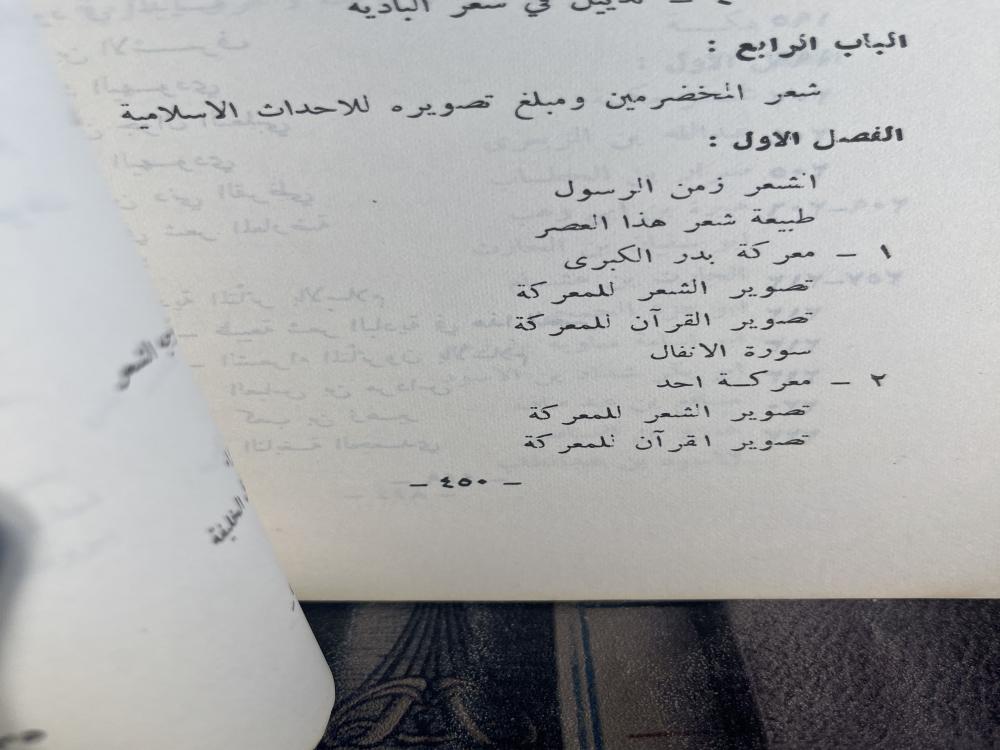 في شعر البادية
الباب الرابع :
شعر المخضرمين ومبلغ تصويره للاحداث الاسلامية
الفصل الاول :
الشعر زمن الرسول
طبيعة شعر هذا العصر
١ – معركة بدر الكبرى
تصوير الشعر للمعركة
تصوير القرآن للمعركة
سورة الانفال
٢ – معركة احد
تصوير الشعر للمعركة
تصوير القرآن للمعركة
– ٤٥٠ –
الشعر
الخليفة